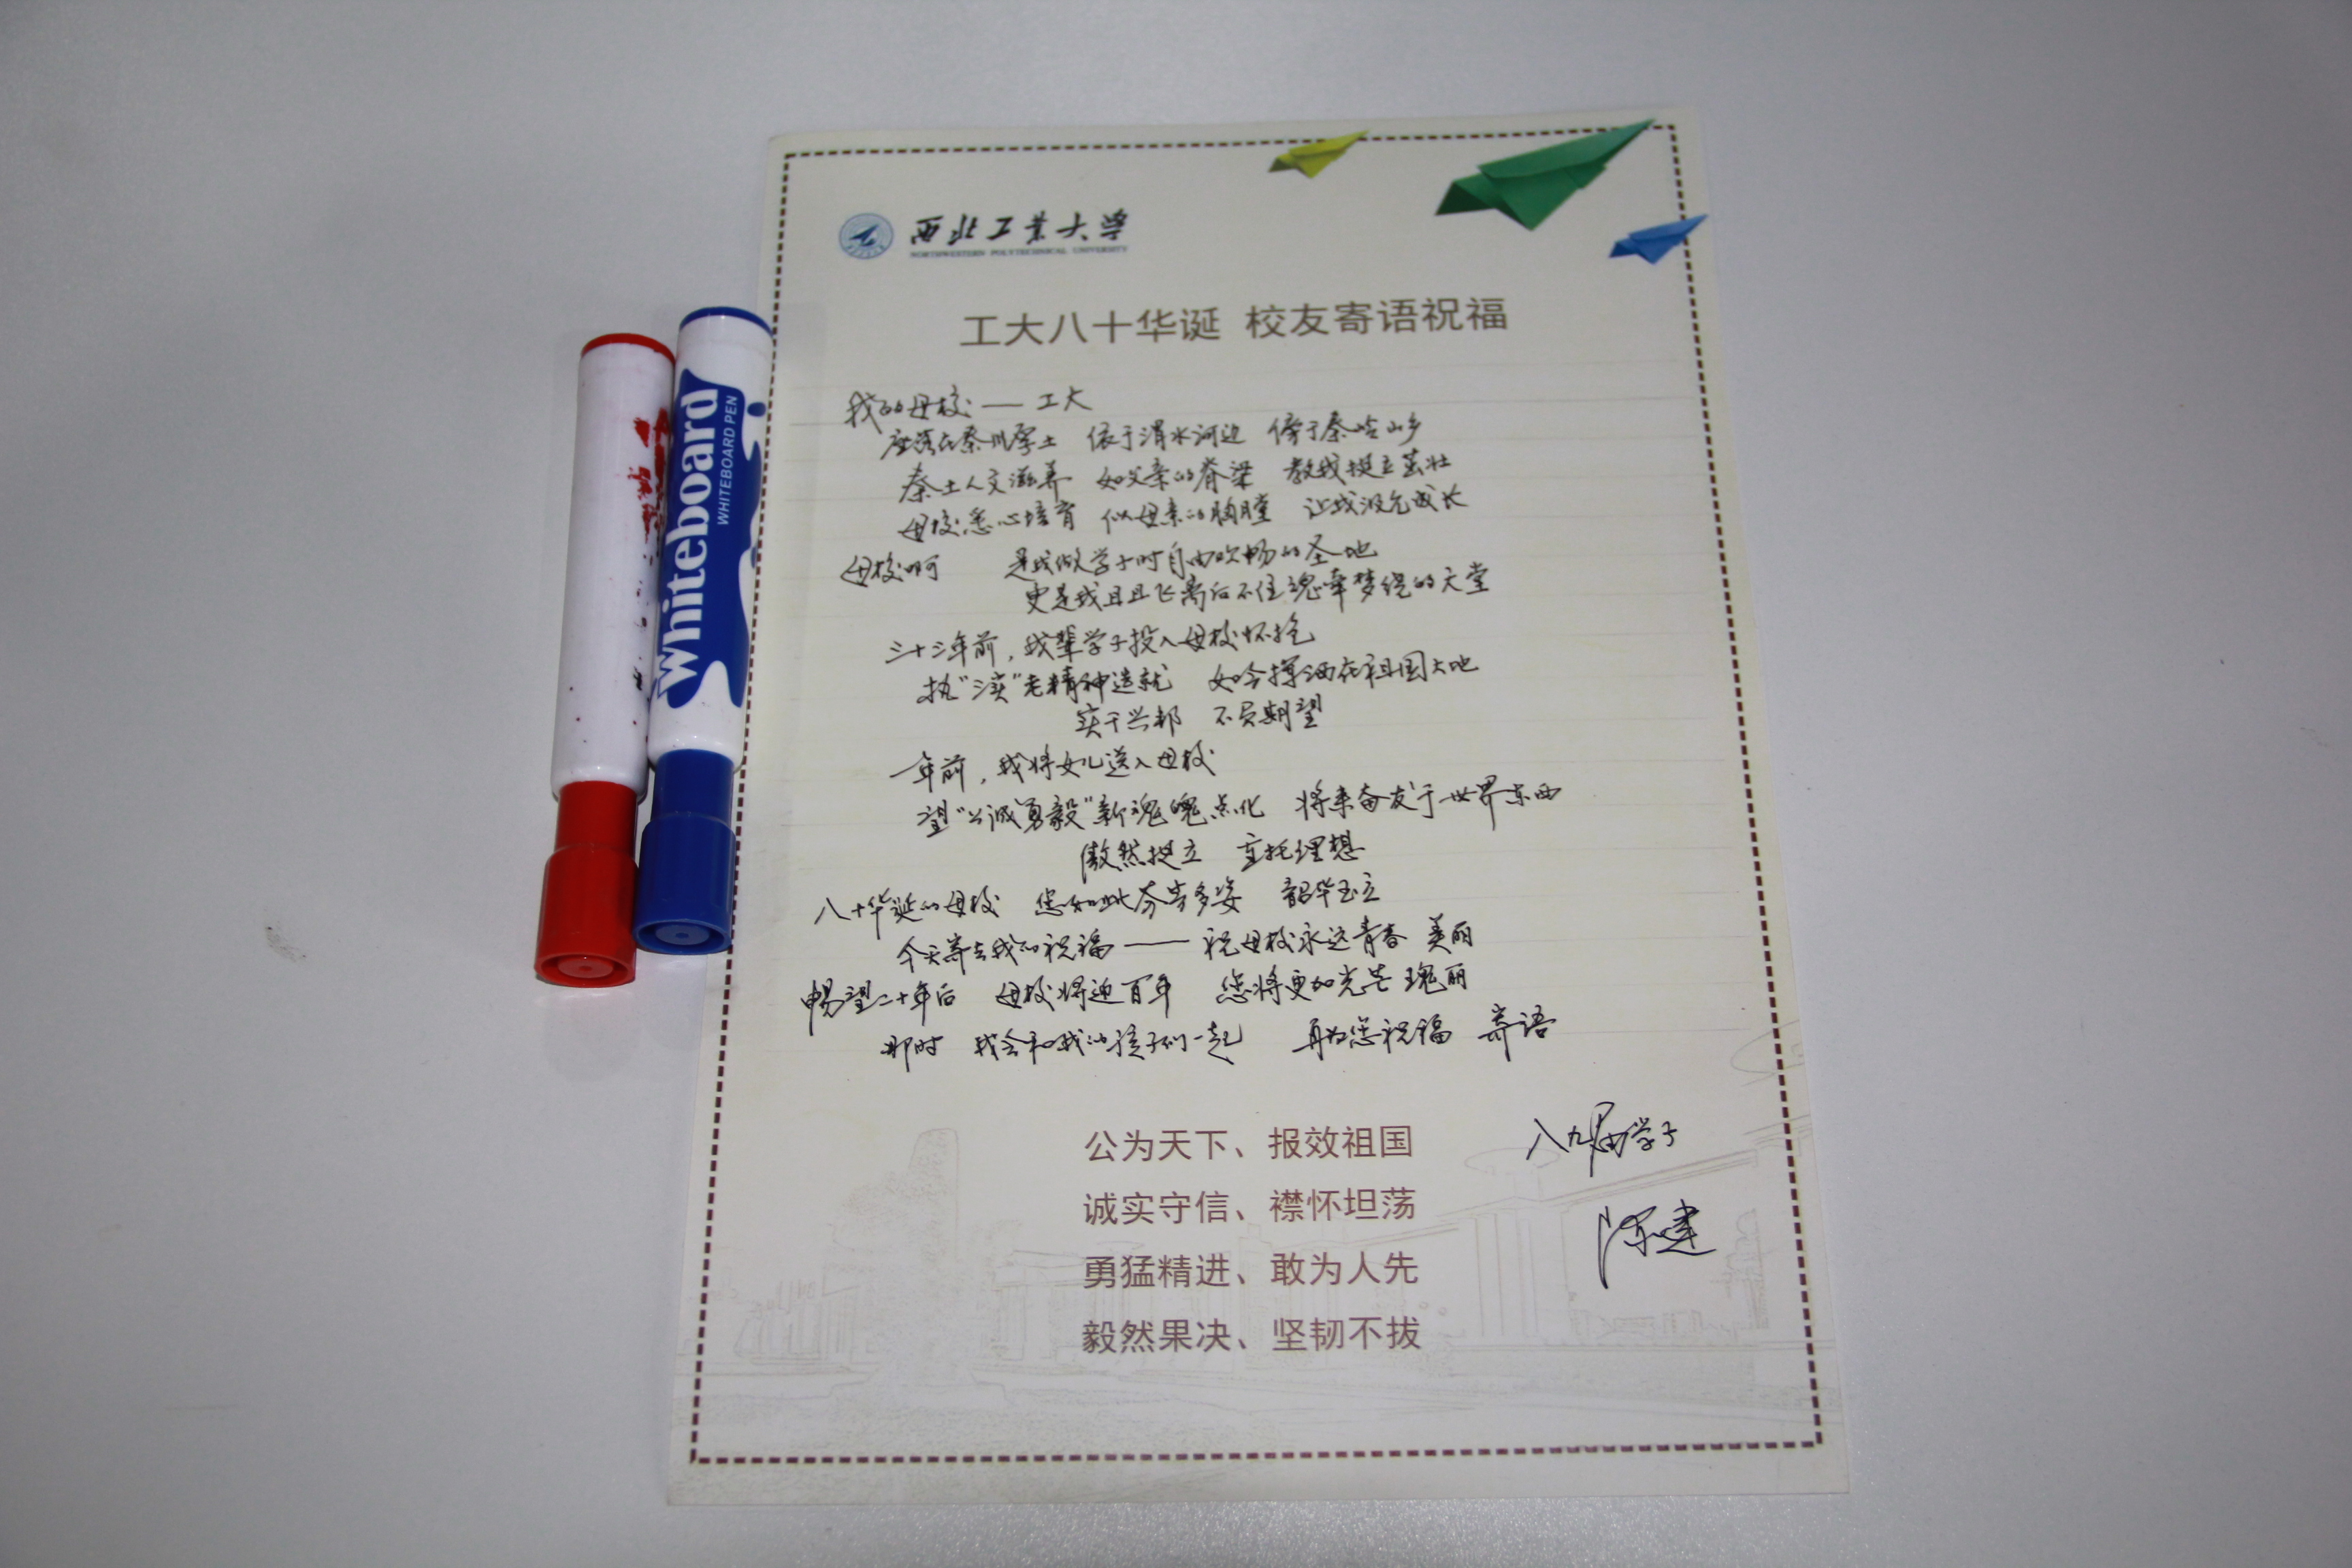 西北工业大学
NORTHWESTERN POLYTECHNICAL UNIVERSITY
工大八十华诞 校友寄语祝福
我的母校——工大
座落在秦川厚土 依于渭水河边 傍于秦岭山乡
秦土人文滋养 如父亲的脊梁 教我挺立茁壮
母校悉心培育 似母亲的胸膛 让我汲允成长
母校啊 是我做学子时自由欢畅的圣地
更是我且且飞离后不住魂牵梦绕的天堂
三十三年前，我辈学子投入母校怀抱
执“三实”老精神造就 如今挥洒在祖国大地
实干兴邦 不负期望
一年前，我将女儿送入母校
望“公诚勇毅”新魂魄点化 将来奋发于世界东西
傲然挺立 重托理想
八十华诞的母校 您如此芬芳多姿 韶华玉立
今天寄去我的祝福—— 祝母校永远青春 美丽
畅望二十年后 母校将迎百年 您将更加光芒 瑰丽
那时 我会和我的孩子们一起 再为您祝福 寄语
公为天下、报效祖国
诚实守信、襟怀坦荡
勇猛精进、敢为人先
毅然果决、坚韧不拔
八九届学子
陈建
Whiteboard
WHITEBOARD PEN